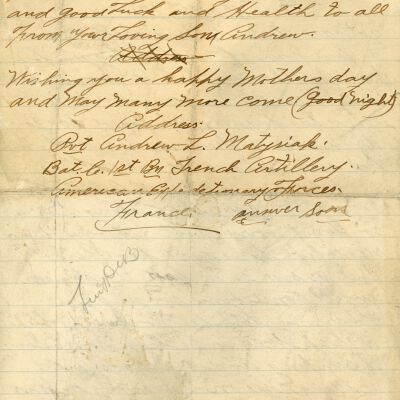 and good luck and Health to all
From your loving Son, Andrew.
Address
Wishing you a happy Mothers day
and May Many more come (Good night)
Address.
Pvt Andrew L. Matysiak.
Bat. C. 1st Bn Trench Artillery.
American Expeditionary Forces.
France. answer Soon